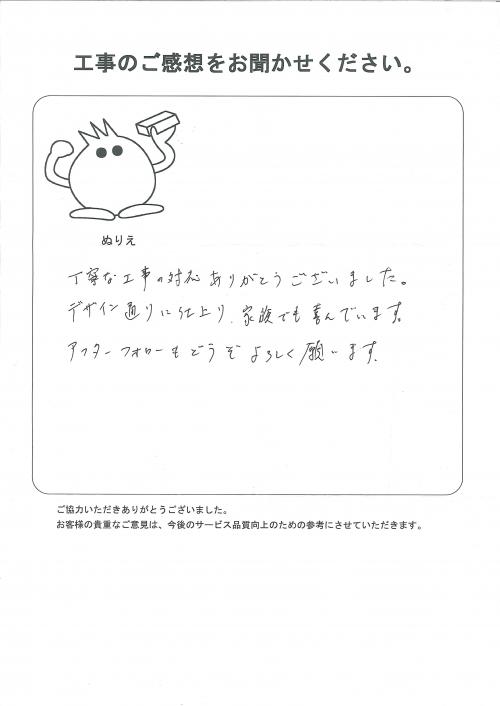 工事のご感想をお聞かせください。
ぬりえ
丁寧な工事の対応ありがとうございました。
デザイン通りに仕上り、家族でも喜んでいます。
アフターフォローもどうぞよろしく願います。
ご協力いただきありがとうございました。
お客様の貴重なご意見は、今後のサービス品質向上のための参考にさせていただきます。